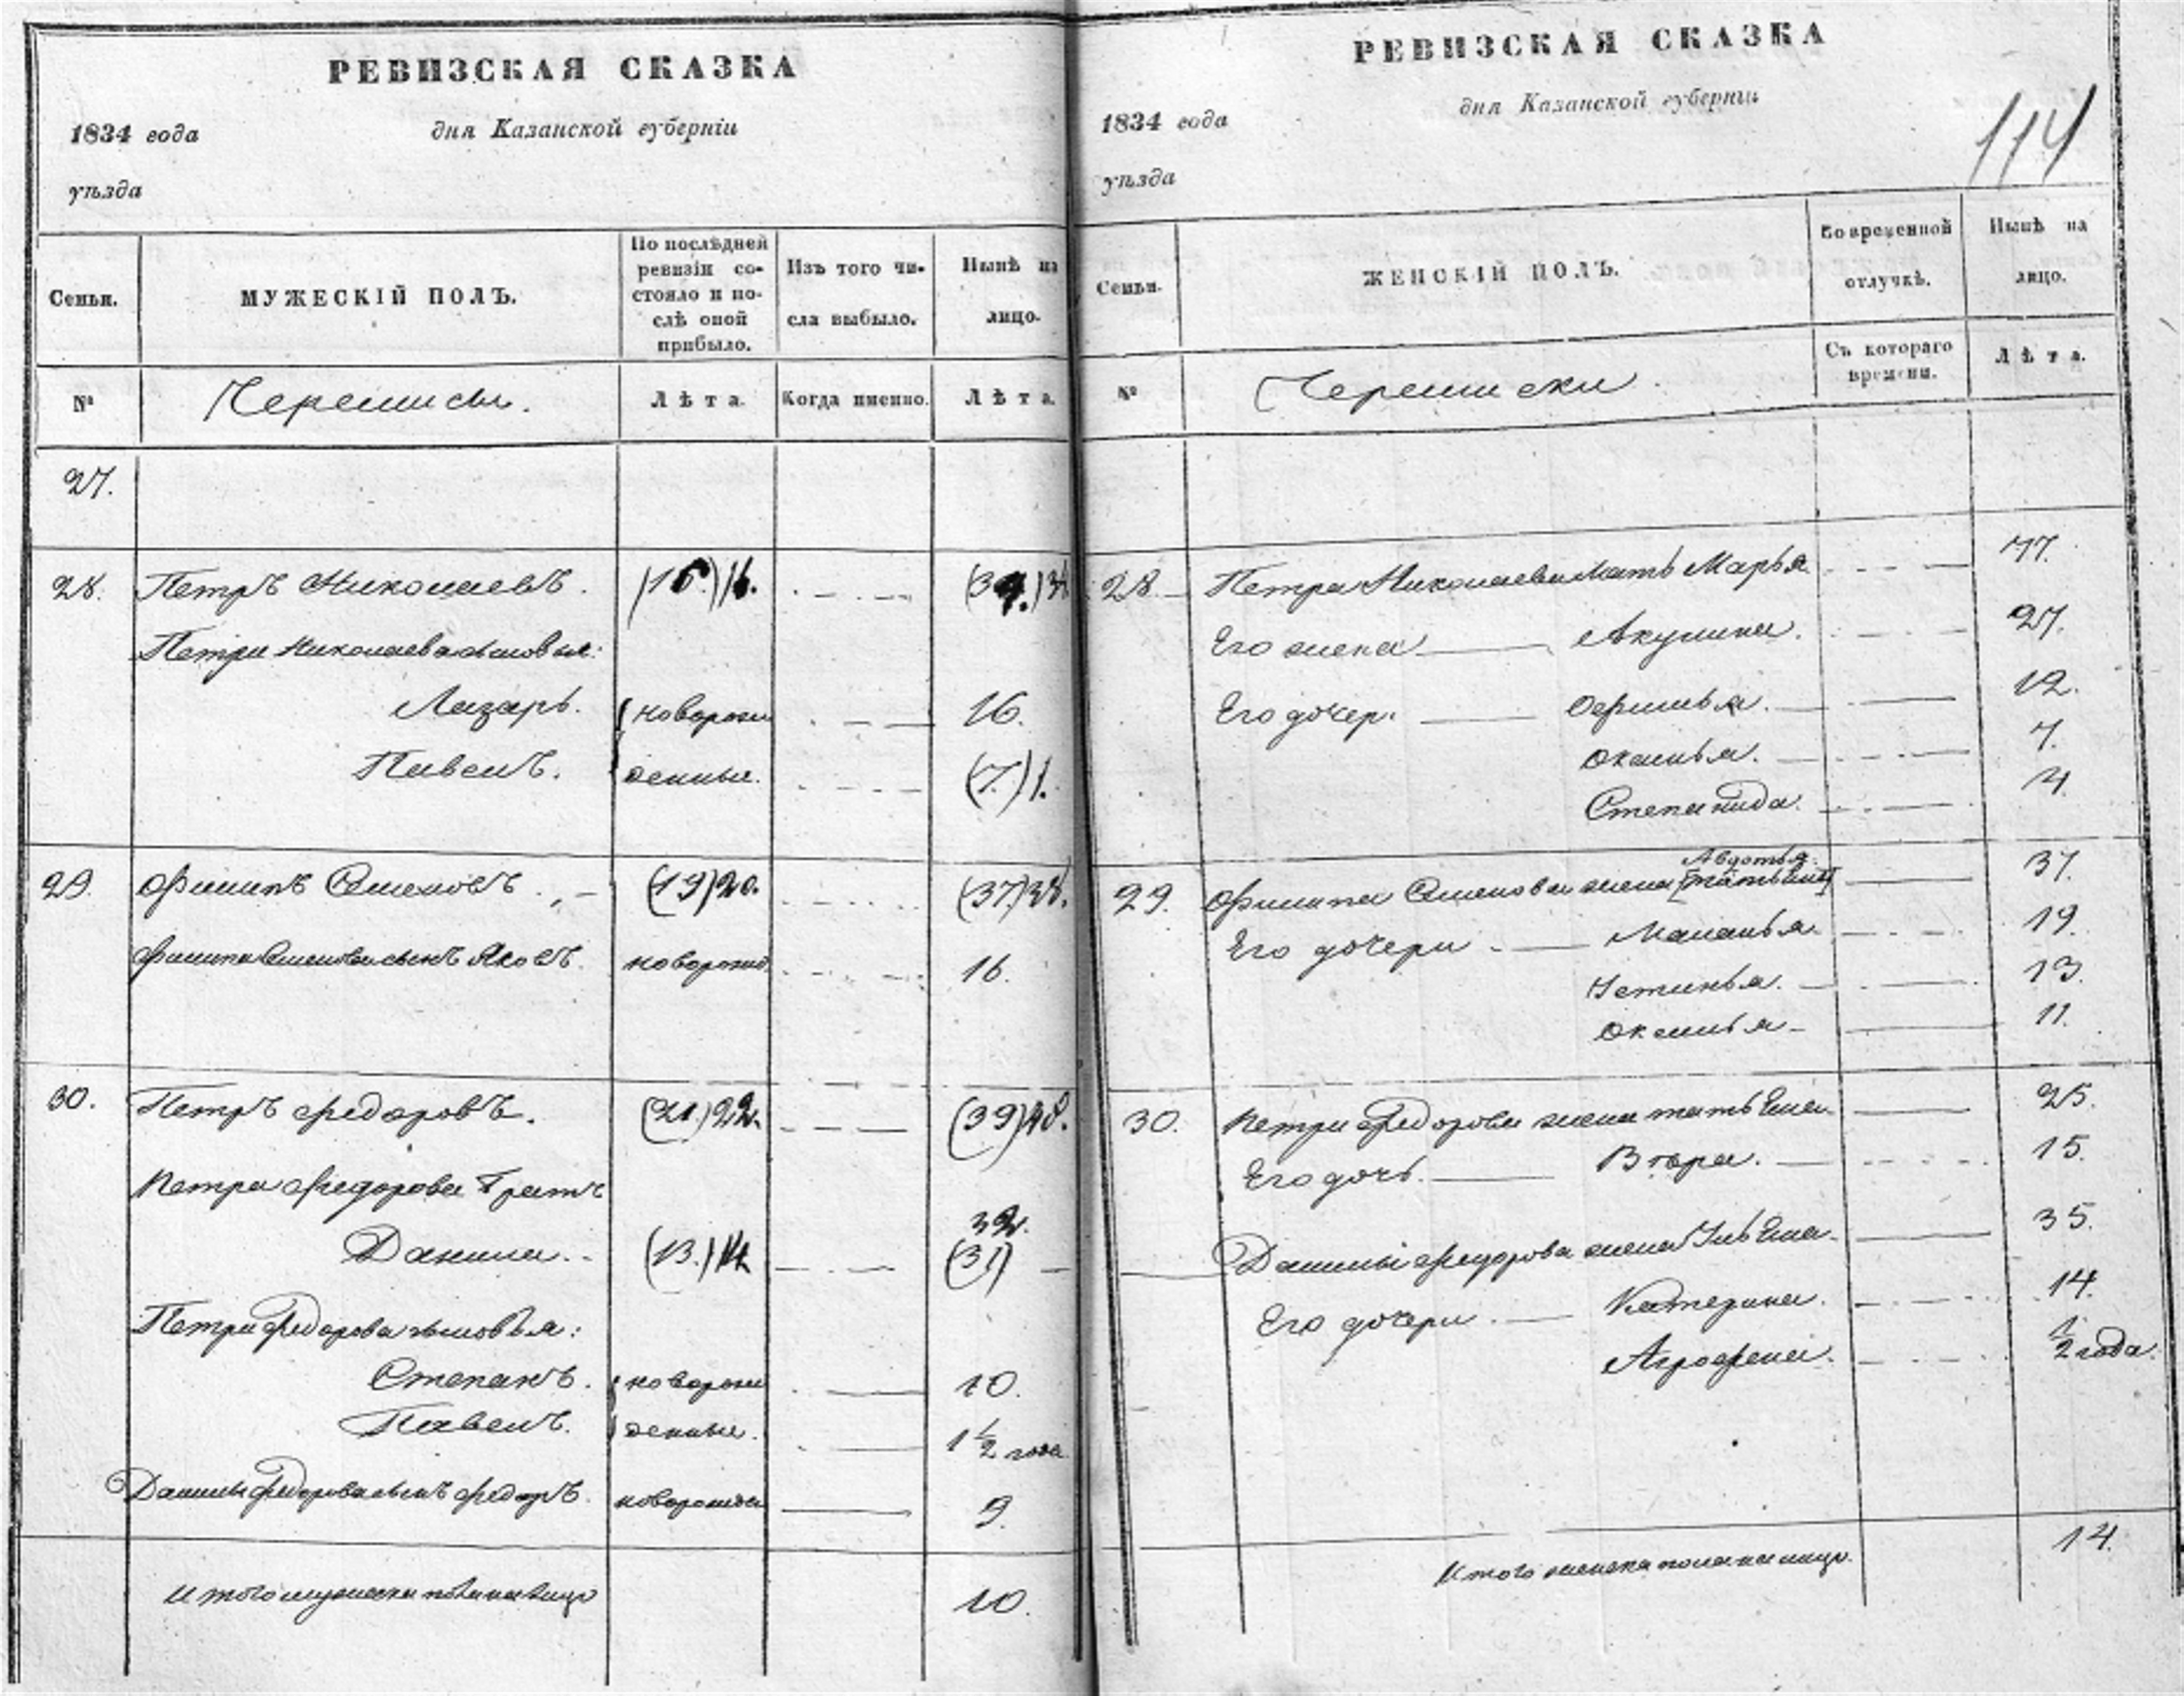 РЕВИЗСКАЯ СКАЗКА
1834 года дня Казанской губерніи
уѣзда
Семьи.
МУЖЕСКІЙ ПОЛЪ.
По послѣдней ревизіи состояло и послѣ оной прибыло.
Изъ того числа выбыло.
Нынѣ на лицо.
№
Черемисы.
Лѣта.
Когда именно.
Лѣта.
27.
28. Петръ Николаевъ. (15.) 16. (34.)
Петра Николаева сыновья:
Лазарь. новорож 16.
Павелъ. денные. (7.) 1.
29. Филипъ Семеновъ (19) 20. (37) 38.
Филипа Семенова сынъ Яковъ. новорожд 16.
30. Петръ Федоровъ. (21.) 22. (39) 40.
Петра Федорова братъ
32.
Данила (13.) 14 (31)
Петра Федорова сыновья:
Степанъ. новорож 10.
Павелъ. денные. 1 1/2 года
Данилы Федорова сынъ Федоръ. новорожден 9.
Итого мужеска пола на лицо 10.
РЕВИЗСКАЯ СКАЗКА
1834 года дня Казанской губерніи
уѣзда
114
Семьи.
ЖЕНСКІЙ ПОЛЪ.
Во временной отлучкѣ.
Нынѣ на лицо.
№
Черемиски.
Съ котораго времени.
Лѣта.
28 Петра Николаева мать Марья 77.
Его жена Акулина. 27.
Его дочер. Офимья. 12.
Оксинья. 7.
Степанида. 4
Авдотья
29. Филипа Семенова жена [Татьяна] 37.
Его дочери Маланья 19.
Устинья. 13.
Оксинья 11.
30. Петра Федорова жена Татьяна 25.
Его дочь. Вѣра. 15.
Данилы Федорова жена Ульяна 35.
Его дочери Катерина. 14.
Агрофена. 1/2 года.
Итого женска пола на лицо. 14.